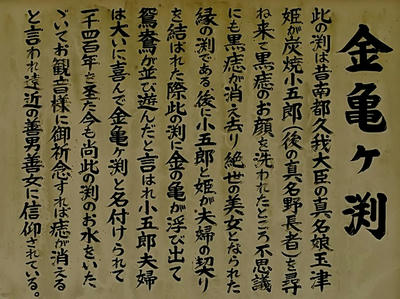 金亀ヶ渕
此の渕は昔南都久我大臣の真名娘玉津
姫が炭焼小五郎(後の真名野長者)を尋
ね来て黒痣のお顔を洗われたところ不思議
にも黒痣が消え去り絶世の美女となられた
縁の渕である後に小五郎と姫が夫婦の契り
を結ばれた際此の渕に金の亀が浮び出て
鴛鴦が並び遊んだと言はれ小五郎夫婦
は大いに喜んで金亀ヶ渕と名付けられて
一千四百年を圣た今も尚此の渕のお水をいた
ゞいてお観音様に御祈念すれば痣が消える
と言われ遠近の善男善女に信仰されている。